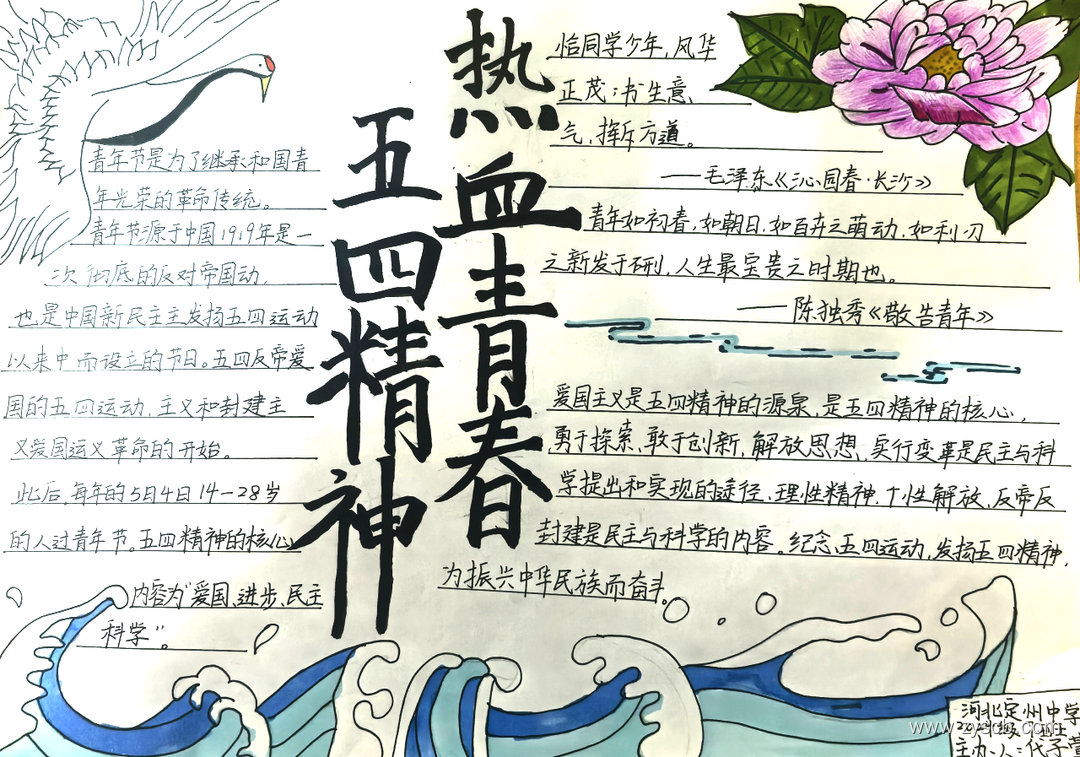 热血青春
五四精神
恰同学少年，风华
正茂；书生意
气，挥斥方遒。
——毛泽东《沁园春·长沙》
青年如初春，如朝日，如百卉之萌动，如利刃
之新发于硎，人生最宝贵之时期也。
——陈独秀《敬告青年》
爱国主义是五四精神的源泉，是五四精神的核心，
勇于探索、敢于创新，解放思想、实行变革是民主与科
学提出和实现的途径、理性精神、个性解放、反帝反
封建是民主与科学的内容。纪念五四运动，发扬五四精神，
为振兴中华民族而奋斗。
青年节是为了继承和国青
年光荣的革命传统。
青年节源于中国1919年是一
次彻底的反对帝国动，
也是中国新民主主发扬五四运动
以来中而设立的节日。五四反帝爱
国的五四运动，主义和封建主
义爱国运义革命的开始。
此后，每年的5月4日14－28岁
的人过青年节。五四精神的核心
内容为"爱国、进步、民主
科学"。
河北定州中学
主办人：代子萱
www.zyscb.com